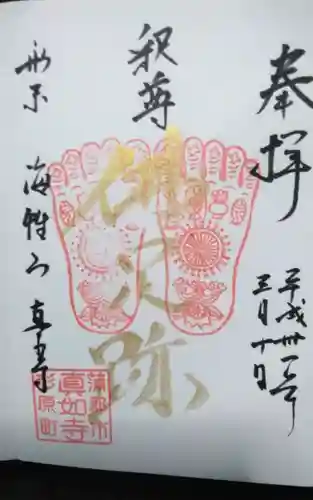 奉拝
平成卅一年
三月十日
釈尊
佛足跡
形原 海 山 真如寺
蒲郡市
真如寺
形原町